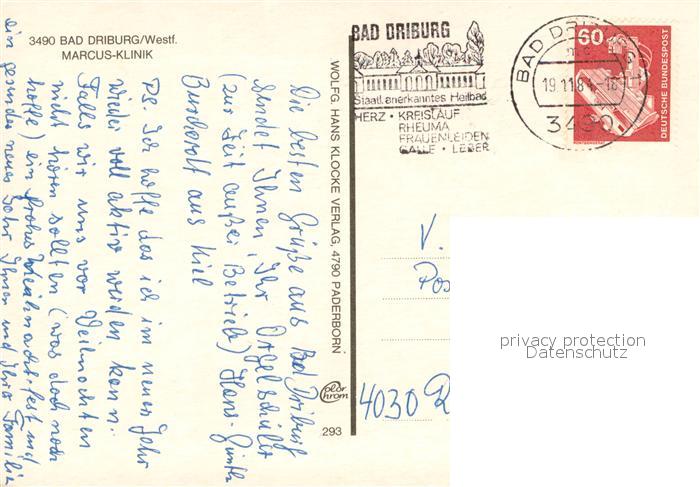 3490 BAD DRIBURG/Westf.
MARCUS-KLINIK
Die besten Grüße aus Bad Driburg
sendet Ihnen, Ihr Orgelschüler
(zur Zeit außer Betriebe) Hans-Günther
aus Kiel
PS. Ich hoffe das ich im neuen Jahr
wieder voll aktiv werden kann.
Falls wir uns vor Weihnachten
nicht hören sollten (was doch noch
hoffe) ein frohes Weihnachtsfest und
ein gesundes neues Jahr Ihnen und Ihrer Familie
WOLFG. HANS KLOCKE VERLAG, 4790 PADERBORN
color
chrom
293
BAD DRIBURG
Staatl. anerkanntes Heilbad
HERZ • KREISLAUF
RHEUMA
FRAUENLEIDEN
GALLE • LEBER
BAD DRIBURG
19.11.84 - 18
3490
60
DEUTSCHE BUNDESPOST
V.
Pos
4030 R
privacy protection
Datenschutz